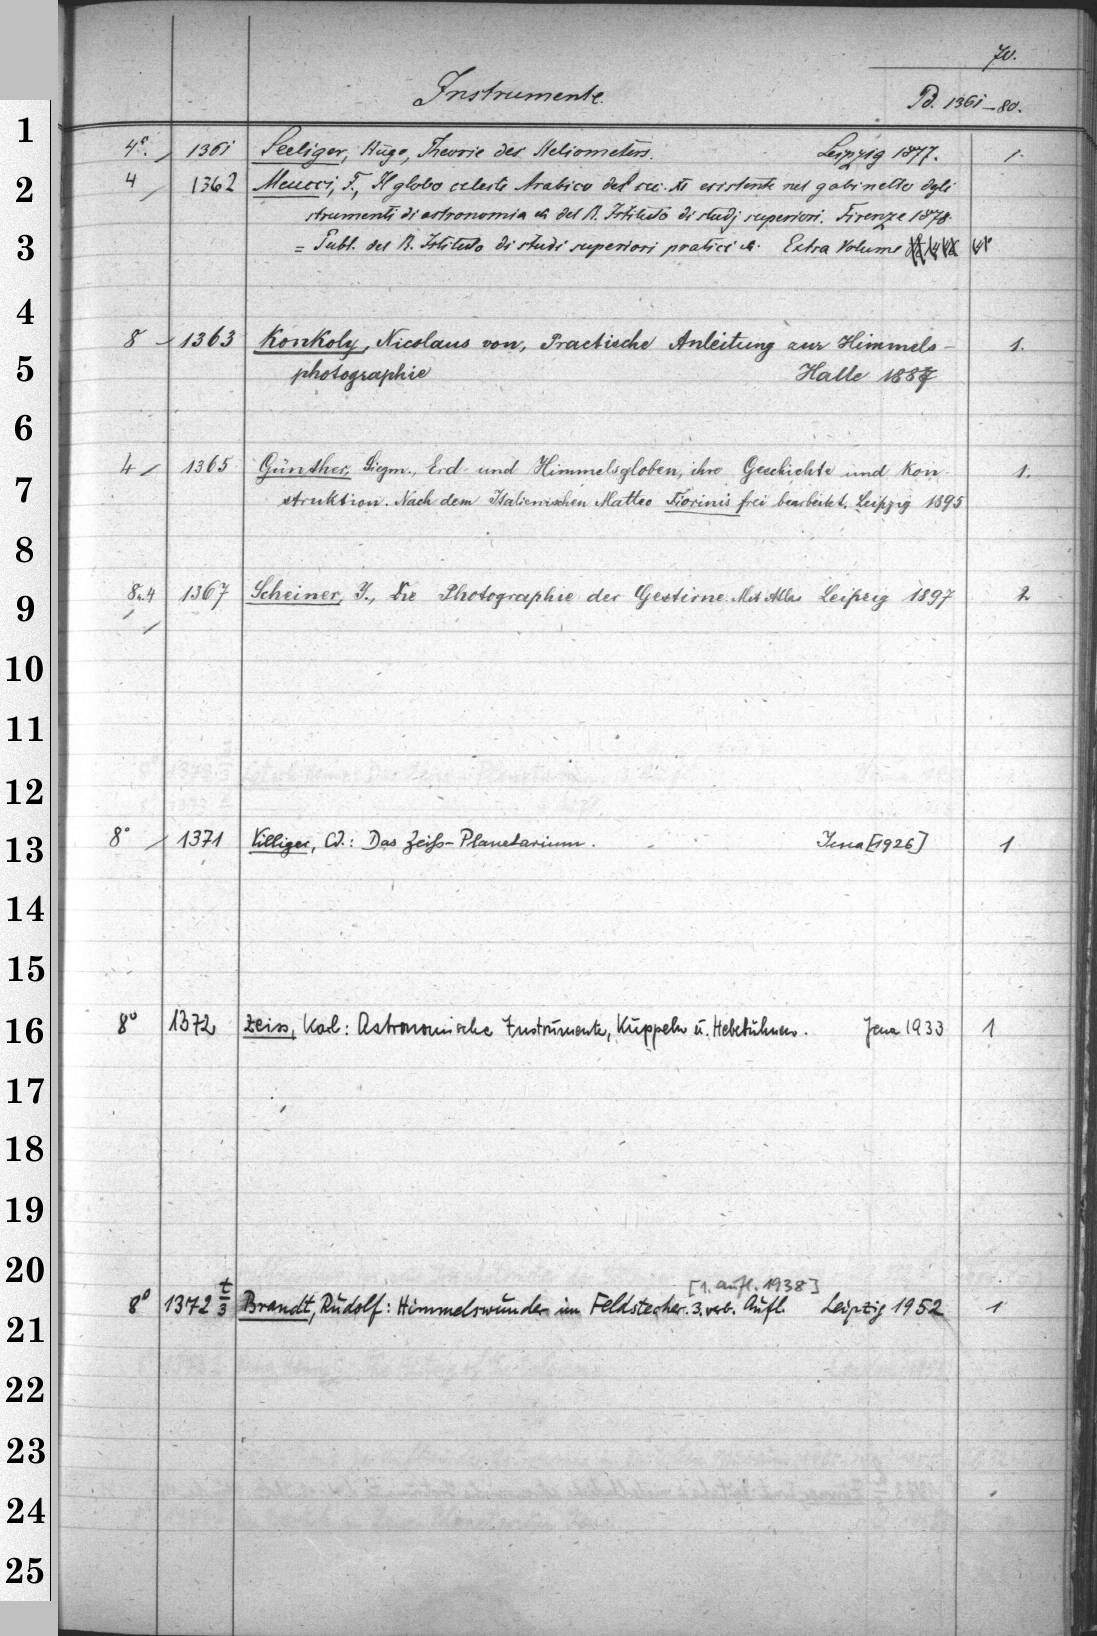 70.
Instrumente.
Pd. 1361-80.
1
4°. 1361 Seeliger, Hugo, Theorie des Heliometers. Leipzig 1877. 1
2
4 1362 Meucci, F., Il globo celeste Arabico del sec. XI esistente nel gabinetto degli
strumenti di astronomia del R. Istituto di studj superiori. Firenze 1878.
3
= Publ. del R. Istituto di studi superiori pratici Extra Volume
4
8 1363 Konkoly, Nicolaus von, Practische Anleitung zur Himmels- 1.
5
photographie Halle 1887
6
4 1365 Günther, Siegm., Erd- und Himmelsgloben, ihre Geschichte und Kon- 1.
7
struktion. Nach dem Italienischen Matteo Fiorinis frei bearbeitet. Leipzig 1895
8
8.4 1367 Scheiner, J., Die Photographie der Gestirne. Mit Atlas Leipzig 1897 2
9
10
11
12
8° 1371 Villiger, W.: Das Zeiß-Planetarium. Jena [1926] 1
13
14
15
8° 1372 Zeiss, Karl: Astronomische Instrumente, Kuppeln u. Hebebühnen. Jena 1933 1
16
17
18
19
20
[1. Aufl. 1938]
8° 1372 t/3 Brandt, Rudolf: Himmelswunder im Feldstecher. 3. verb. Aufl. Leipzig 1952 1
21
22
23
24
25